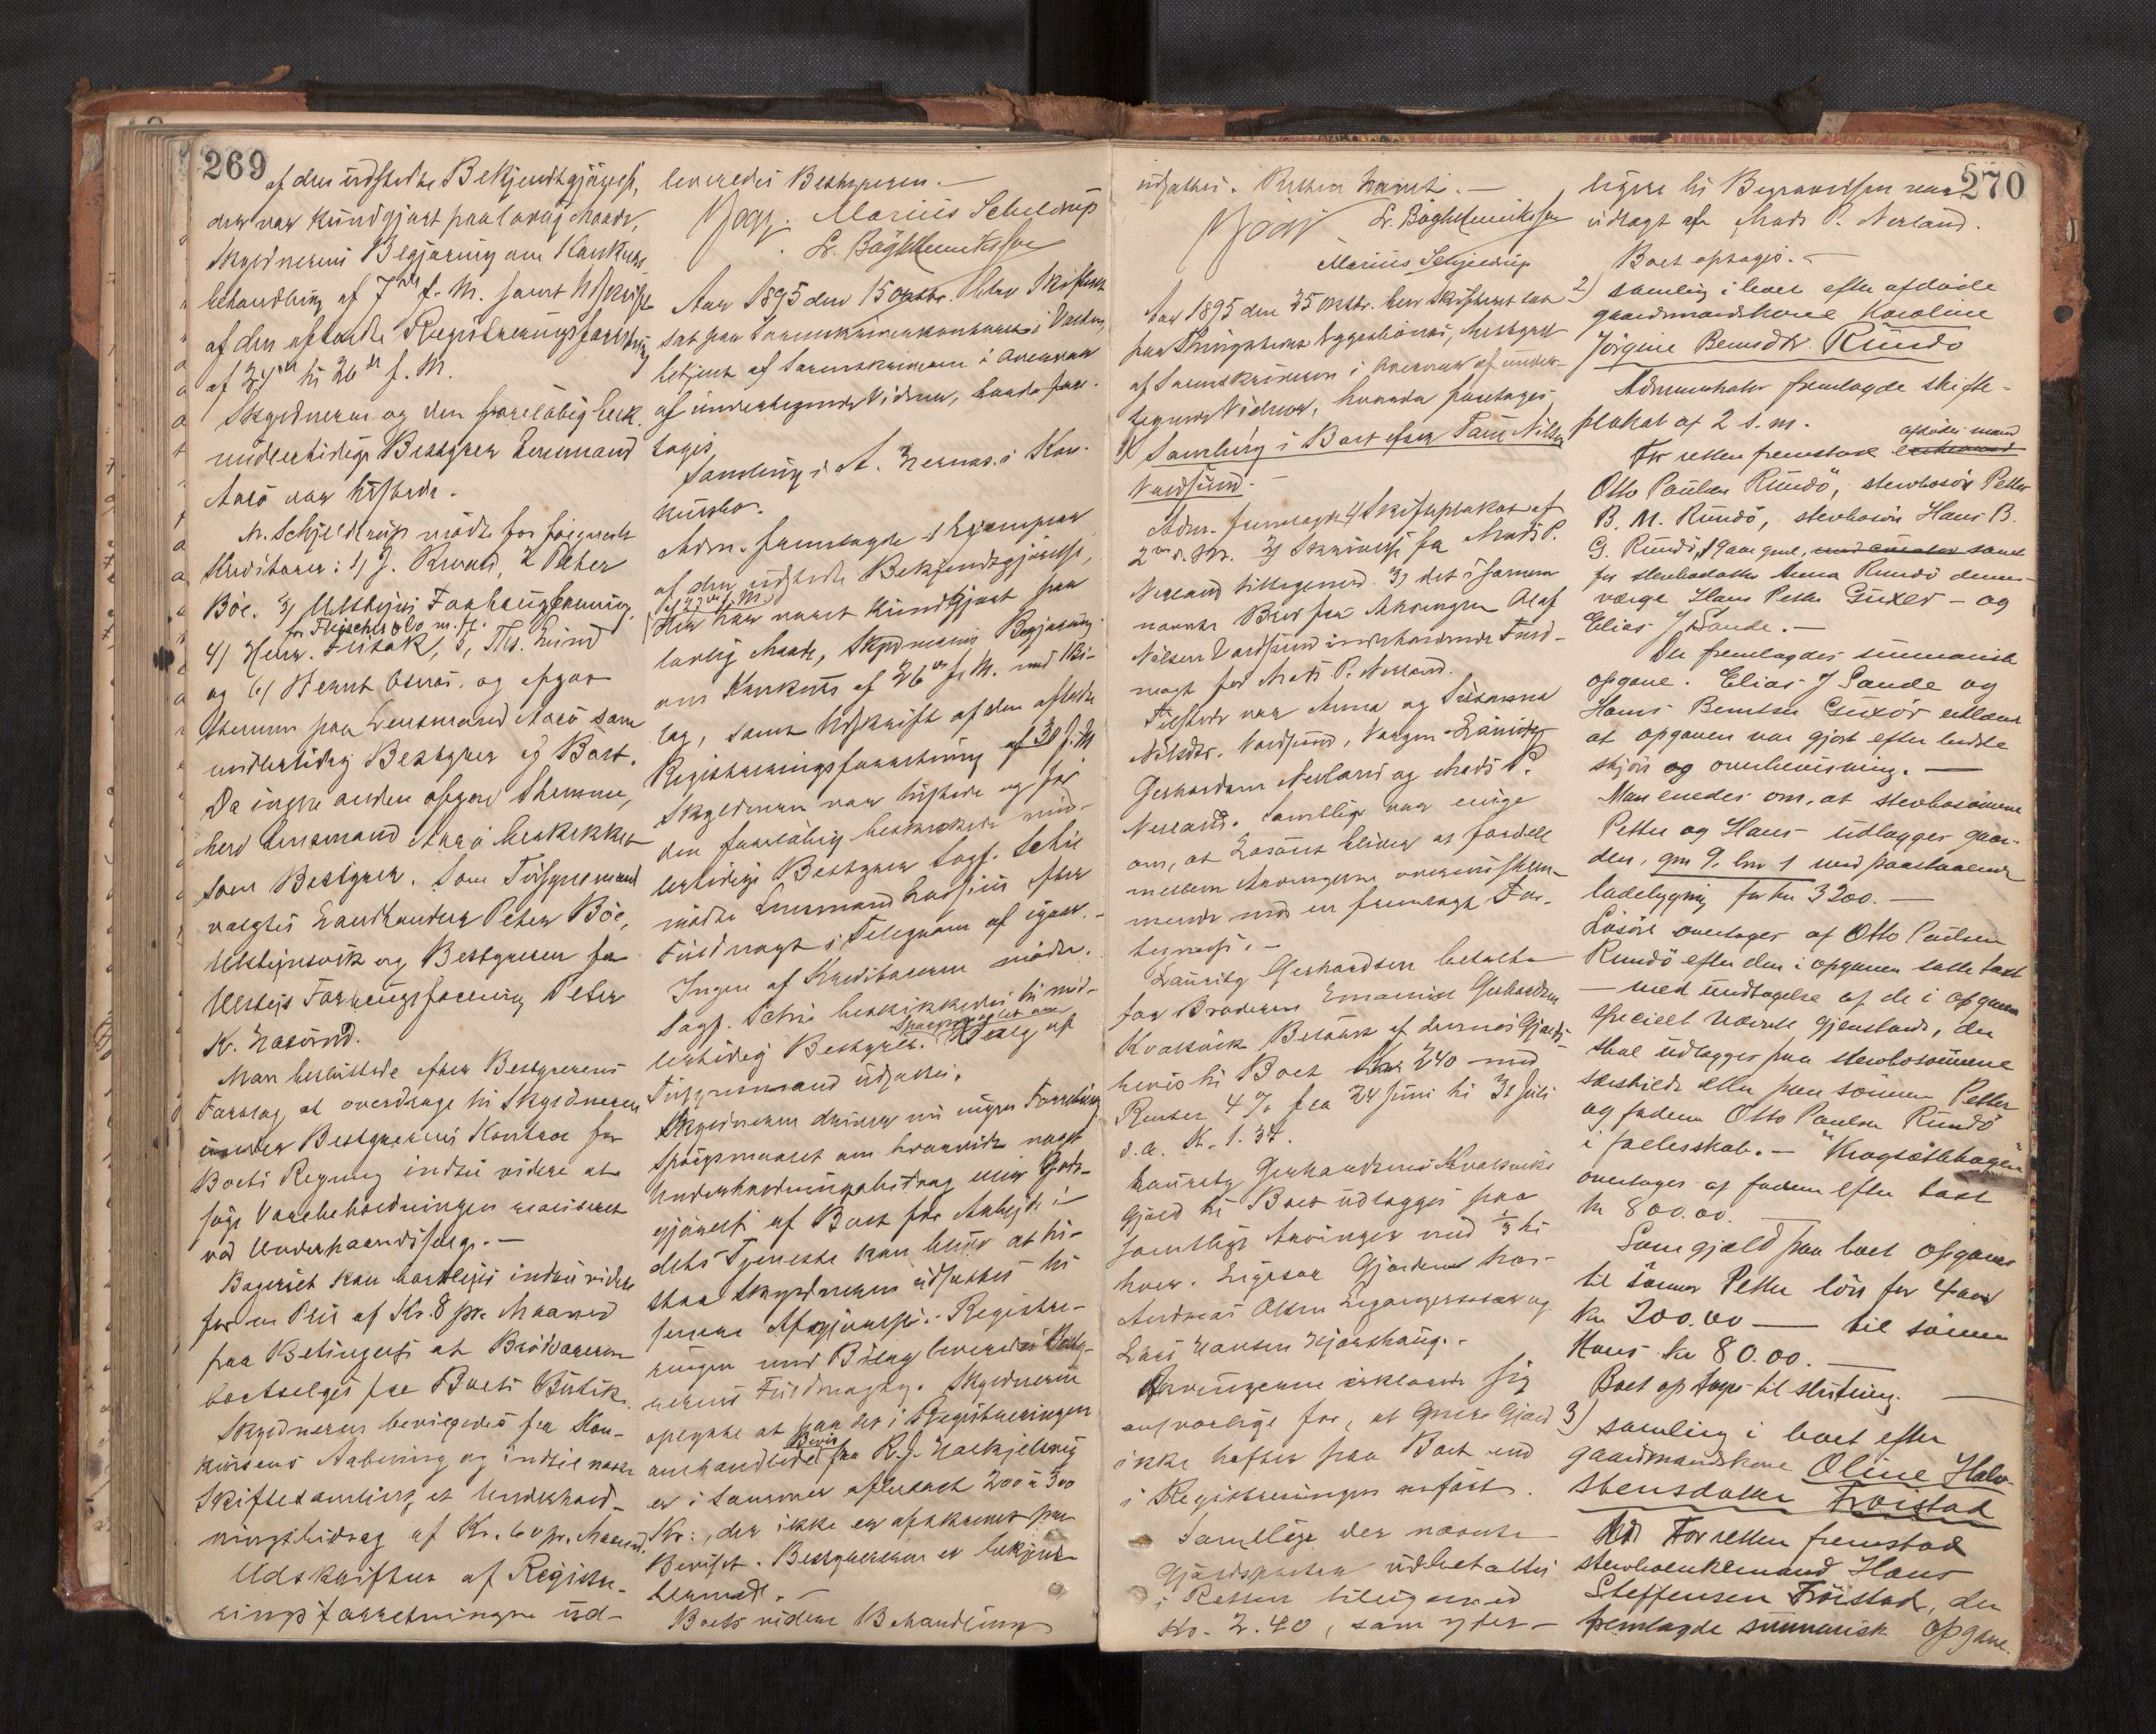 269
af den udstedte Bekjendtgjørelse,
der var kundgjort paa lovlig Maade,
Skyldnerens Begjæring om Konkurs
behandling af 7de f. M. samt Udskrift
af den afholdte Registreringsforretning
af 24de til 26de f. M.
Skyldneren og den foreløbig besk.
midlertidige Bestyrer Lensmand
Aasø var tilstede.
M. Schjeldrup mødte for følgende
Kreditorer: 1) J. 2 Peter
Böe. 3) Ulstejns Forbrugsforening,
for Fleischer & Co m. fl.
4) Henr. 5, Ths. Lund
og 6) Bernt Osnæs. og afgav
Stemme paa Lensmand Aasø som
midlertidig Bestyrer af Boet.
Da ingen anden afgav Stemme,
blev Lensmand Aasø beskikket
som Bestyrer. Som Tilsynsmand
valgtes Landhandler Peter Böe,
Ulstejnsvik og Bestyreren for
Ulstejns Forbrugsforening Peter
K. Hasund.
Man besluttede efter Bestyrerens
Forslag at overdrage til Skyldneren
under Bestyrerens Kontrol for
Boets Regning indtil videre at
søge Varebeholdningen realiseret
ved Underhaandssalg. —
Bageriet kan bortlejes indtil videre
for en Pris af Kr. 8 pr. Maaned
paa Betingelse at Brødvarerne
bortselges fra Boets Butik.
Skyldneren bevilgedes fra Kon-
kursens Aabning og indtil næste
Skiftesamling et Underhold-
ningsbidrag af Kr. 60 pr. Maaned.
Udskriften af Registre-
ringsforretningen ud-
leveredes Bestyreren. —
Marius Schjeldrup
L. Bøgh Henrikssen
Aar 1895 den 15 oktbr. blev Skifteret
sat paa Sorenskriverkontoret i Volden
betjent af Sorenskriveren i Overvær
af undertegnede Vidner, hvorda fore-
toges
Samling i A. i Kon-
kursbo.
Adm. fremlagde 1 Exemplar
af den udstedte Bekjendtgjørelse,
af 27de f. M.
der har været kundgjort paa
lovlig Maade, Skyldnerens Begjæring
om Konkurs af 26de f. M. med Bi-
lag, samt Udskrift af den afholdte
Registreringsforretning af 30 f. M
Skyldneren var tilstede og for
den foreløbig beskikkede mid-
lertidige Bestyrer Sagf. Schie
mødte Lensmand efter
Fuldmagt i Telegram af igaar. -
Ingen af Kreditorerne mødte.
Sagf. Schie beskikkedes til mid-
Spørgsmaalet om
lertidig Bestyrer. Valg af
Tilsynsmand udsattes.
Skyldneren driver nu ingen Forretning
Spørgsmaalet om hvorvidt noget
Underholdningsbidrag eller Godt-
gjørelse af Boet for Arbejde i
dets Tjeneste kan blive at til-
staa Skyldneren udsattes til
senere Afgjørelse. - Registre-
ringen med Bilag leveredes Besty-
rerens Fuldmægtig. Skyldneren
oplyste at paa det i Registreringen
Bevis
omhandlede fra R. J.
er i Sommer afbetalt 200 à 300
Kr:, der ikke er afskrevet paa
Beviset. Bestyreren er bekjendt
hermed. —
Boets videre Behandling
270
udsattes. Retten hævet. —
L. Bøgh Henrikssen
Marius Schjeldrup
Aar 1895 den 25 oktbr. blev Skifteret sat
paa Thingstedet Eggesbønes, bestyret
af Sorenskriveren i Overvær af under-
tegnede Vidner, hvorda foretoges
1) Samling i Boet efter Nilsen
Vaadsund. -
Adm. fremlagde 1) Skifteplakat af
2den d. M. 2) Skrivelse fra Mads P.
Nerland tilligemed 3) det i samme
nævnte Brev fra Arvingen Olaf
Nilsen Vaadsund indeholdende Fuld-
magt for Mads P. Nerland.
Tilstede var Anna og Susanna
Nilsdtr. Vaadsund, Værgen Lauritz
Gerhardsen Nerland og Mads P.
Nerland. Samtlige var enige
om, at Løsøret bliver at fordele
mellem Arvingerne overensstem-
mende med en fremlagt For-
tegnelse. -
Lauritz Gerhardsen betalte
for Broderen Emanuel Gerhardsen
Kvalsvik Beløbet af dennes Gjælds-
bevis til Boet Kr. 240 med
Renter 4 % fra 24 Juni til 31 Juli
d. a. K. 1. 34.
Lauritz Gerhardsens Kvalsviks
Gjæld til Boet udlægges paa
samtlige Arvinger med 1/3 til
hver. Ligesaa Gjælden hos
Andreas Olsen og
Lars Hansen Hjørshaug. -
Arvingerne erklærte sig
ansvarlige for, at Gjæld
ikke hefter paa Boet end
i Registreringen anført.
Samtlige der nævnte
Gjældsposter udbetaltes
i Retten tilligemed
Kr. 2.40, som yder-
ligere til Begravelsen var
udlagt af Mads P. Nerland.
Boet optoges. —
2) Samling i boet efter afdøde
gaardmandskone Karoline
Jørgine Berntsdtr. Rundö
Administrator fremlagde skifte-
plakat af 2 d. m.
afdødes mand
For retten fremstod enkemand
Otto Paulsen Rundö, stervbosön Petter
B. M. Rundö, stervbosön Hans B.
G. Rundö, 19 aar gml, med curator samt
for stervbodatter Anna Rundö dennes
værge Hans Petter Guxör - og
Elias J Sande. —
Der fremlagdes summarisk
opgave. Elias J Sande og
Hans Berntsen Guxör erklærte
at opgaven var gjort efter bedste
skjön og overbevisning. —
Man enedes om, at stervbosönnerne
Petter og Hans udlægges gaar-
den, gm 9. bm 1 med paastaaende
ladebygning for kr 3200. —
Lösöre overtages af Otto Paulsen
Rundö efter den i opgaven satte taxt
— med undtagelse af de i opgaven
specielt nævnte gjenstande, der
skal udlægges paa stervbosönnerne
særskildt eller paa sönnen Petter
og faderen Otto Paulsen Rundö
i fællesskab. — "Krogsætehagen"
overtages af faderen efter taxt
kr 800.00. —
Som gjæld paa boet opgaves
til sönnen Petter lön for 4 aar
kr 200.00 — til sönnen
Hans kr 80.00. —
Boet optoges til slutning. —
3) Samling i boet efter
gaardmandskone Oline Halv-
stensdatter Fröistad
For retten fremstod
stervboenkemand Hans
Steffensen Fröistad, der
fremlagde summarisk opgave.